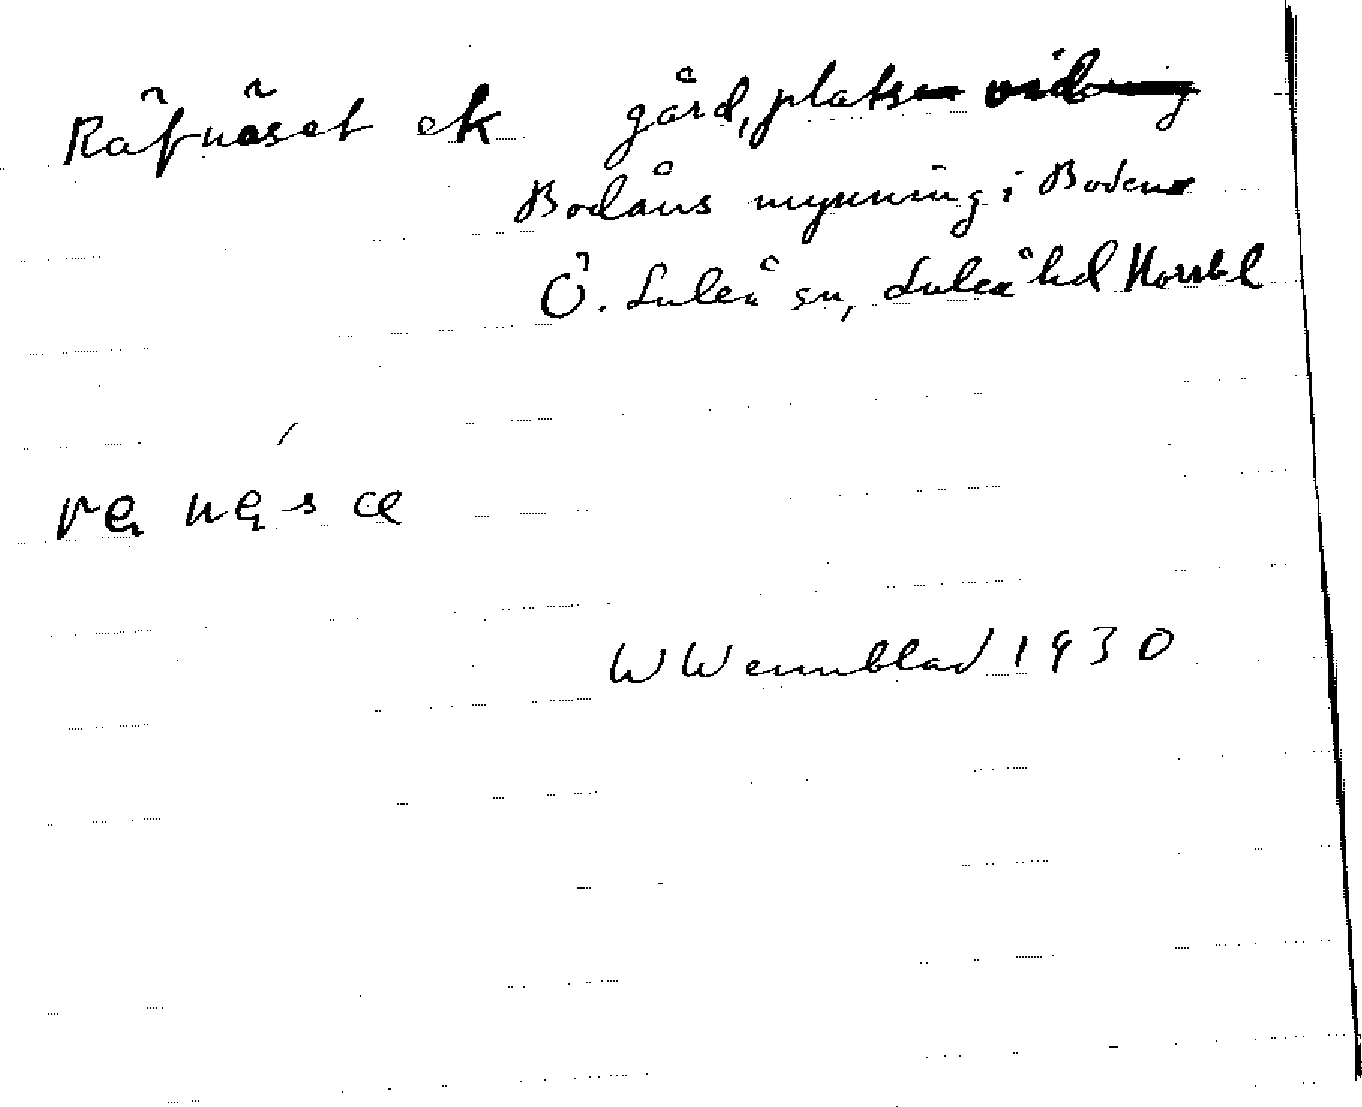 Räfnäset ek gård, plats vid
Bodåns mynning i Boden
Ö. Luleå sn, Luleå hd Norrb l
rę nęs æ
W Wennblad 1930